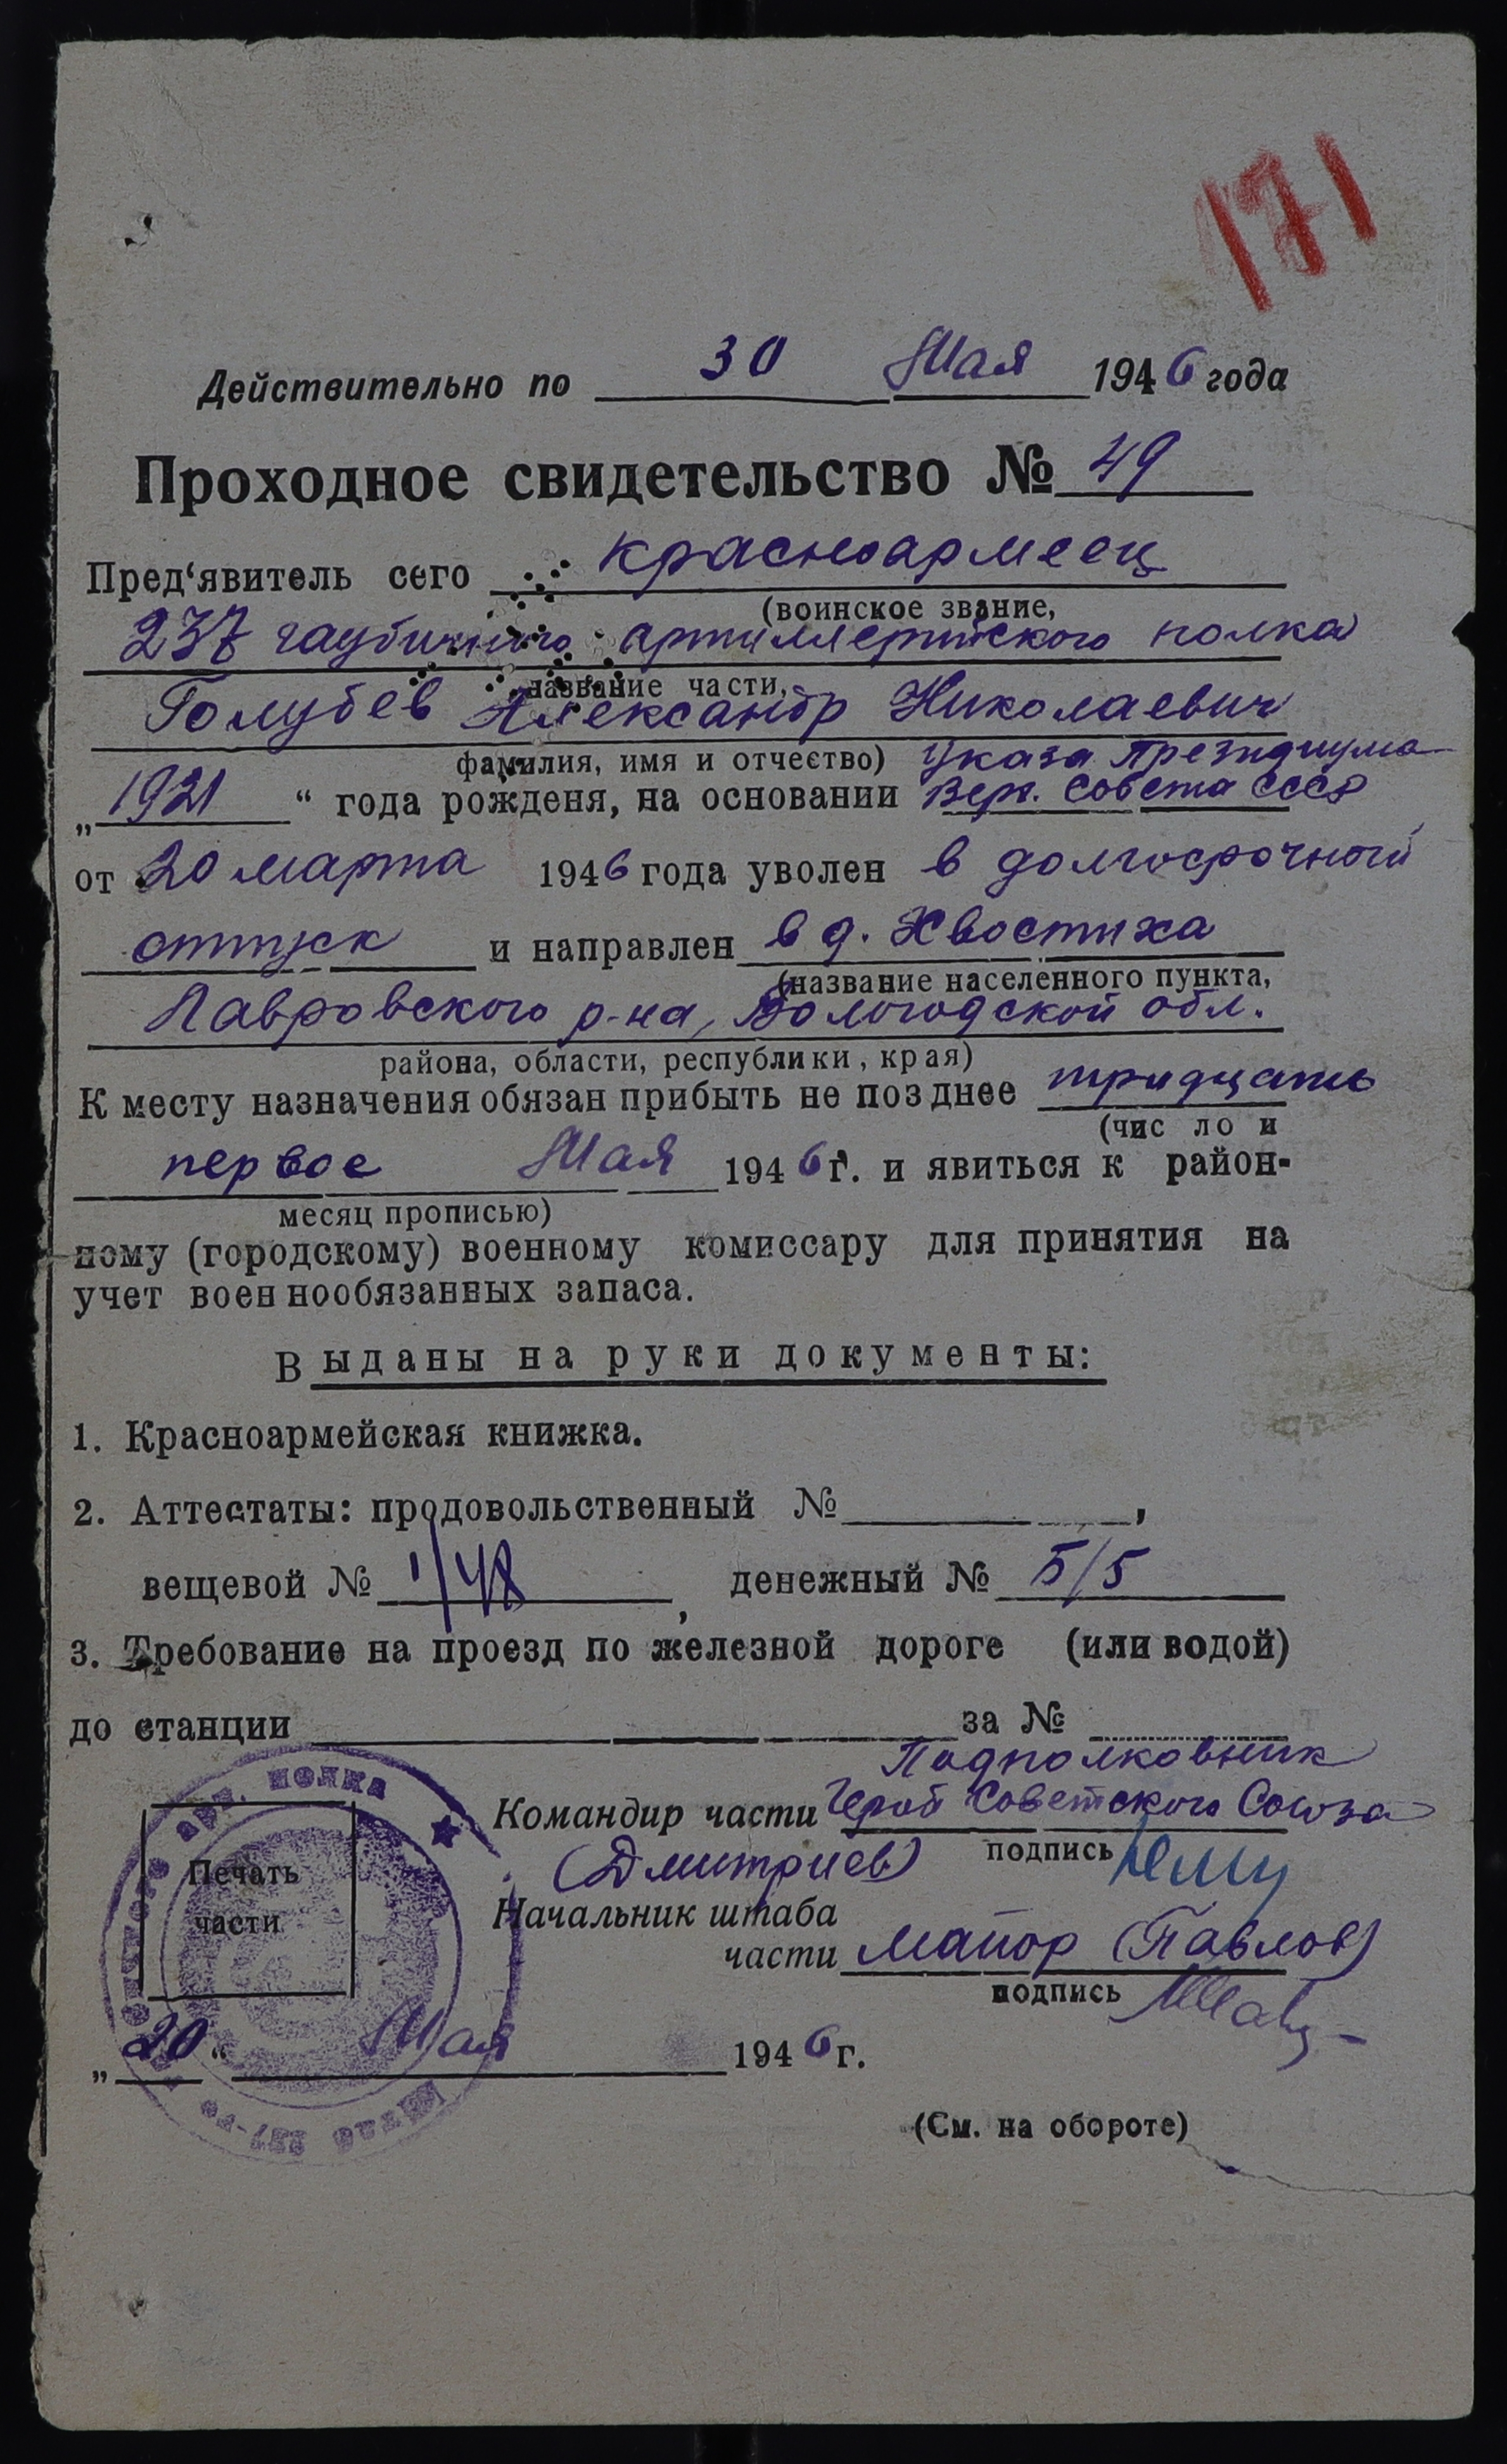 171
Действительно по 30 Мая 1946 года
Проходное свидетельство № 49
Пред‘явитель сего красноармеец
(воинское звание,
237 гаубичного артиллерийского полка
название части,
Голубев Александр Николаевич
фамилия, имя и отчество) Указа Президиума
„1921“ года рожденя, на основании Верх. Совета СССР
от 20 марта 1946 года уволен в долгосрочный
отпуск и направлен в д. Хвостиха
(название населенного пункта,
Лавровского р-на, Вологодской обл.
района, области, республики, края)
К месту назначения обязан прибыть не позднее тридцать
(число и
первое Мая 1946 г. и явиться к район-
месяц прописью)
ному (городскому) военному комиссару для принятия на
учет военнообязанных запаса.
Выданы на руки документы:
1. Красноармейская книжка.
2. Аттестаты: продовольственный № ,
вещевой № 1/48, денежный № 5/5
3. Требование на проезд по железной дороге (или водой)
до станции за №
Подполковник
Командир части Герой Советского Союза
подпись
(Дмитриев)
Начальник штаба
части майор (Павлов)
подпись
Печать
части
арт. полка
Штаб 237-го
„20“ Мая 1946 г.
(См. на обороте)